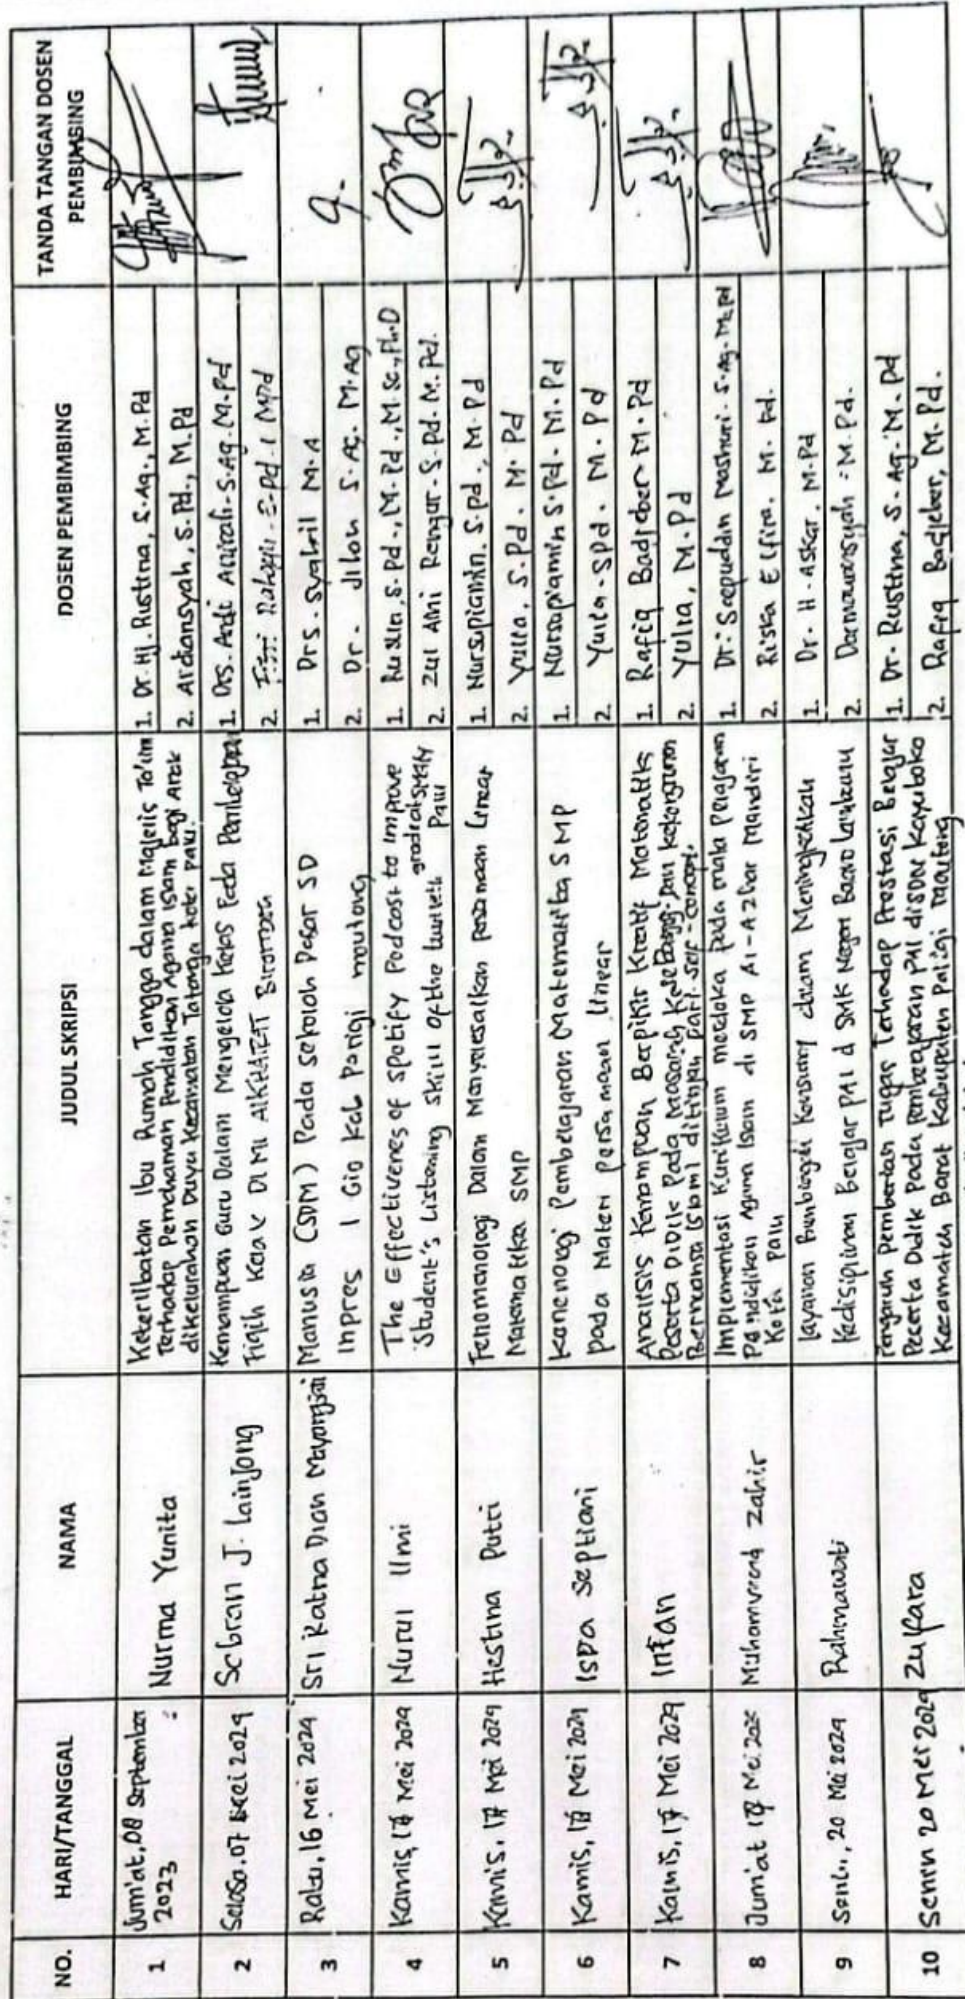 NO. HARI/TANGGAL NAMA JUDUL SKRIPSI DOSEN PEMBIMBING TANDA TANGAN DOSEN PEMBIMBING
1
Jum'at, 08 September
2023
Nurma Yunita
Keterlibatan Ibu Rumah Tangga dalam Majelis Ta'lim
Terhadap Pemahaman Pendidikan Agama Islam bagi Anak
dikelurahan Duyu Kecamatan Tatanga kota palu.
1. Dr. Hj. Rustina, S.Ag., M.Pd
2. Ardiansyah, S.Pd., M.Pd
2
Selasa. 07 Mei 2024
Sebran J. Lainjong
Kemampuan Guru Dalam Mengelola Kelas Pada
Fiqih Kelas V Di MI
1. Drs. Ardi S.Ag. M.Pd
2.
3
Rabu, 16 Mei 2024
Sri Ratna Dian
Manusia (SDM) Pada sekolah Dasar SD
Inpres 1 Gio Kab Parigi moutong
1. Drs. Syahril M.A
2. Dr. Jihan S.Ag. M.Ag
4
Kamis, 17 Mei 2024
Nurul Ilmi
The Effectivenes of Spotify Podcast to Improve
Student's Listening Skill Of the
1. S.Pd., M.Pd., M.Sc., Ph.D
2. Zul Ahi Rengur. S.Pd. M.Pd.
5
Kamis, 17 Mei 2024
Hestina Putri
Fenomenologi Dalam Menyelesaikan Persamaan Linear
Matematika SMP
1. Nursupiamin. S.Pd., M.Pd
2. Yulia. S.Pd. M.Pd
6
Kamis, 17 Mei 2024
Ispa Septiani
Pembelajaran Matematika SMP
pada Materi Persamaan Linear
1. Nursupiamin S.Pd. M.Pd
2. Yulia. S.Pd. M.Pd
7
Kamis, 17 Mei 2024
Intan
Analisis Kemampuan Berpikir Kreatif Matematis
Peserta Didik Pada Masalah Kesebangunan Dan Kekongruenan
ditinjau Dari self-concept.
1. Rafiq Badjeber M.Pd
2. Yulia, M.Pd
8
Jum'at 17 Mei 2024
Muhammad Zahir
Implementasi Kurikulum merdeka pada mata Pelajaran
Pendidikan Agama Islam di SMP Al-Azhar Mandiri
Kota Palu
1. Dr. Saepuddin Mashuri. S.Ag. M.Pd
2. Riska Elfira. M. Pd.
9
Senin, 20 Mei 2024
Rahmawati
Layanan Bimbingan Konseling dalam Meningkatkan
Kedisiplinan Belajar PAI d SMK Negeri
1. Dr. H. Askar. M.Pd
2. Darmawansyah M.Pd.
10
Senin 20 Mei 2024
Zulfara
Pengaruh Pemberian Tugas Terhadap Prestasi Belajar
Peserta Didik Pada pembelajaran PAI di SDN Kayuboko
Kecamatan Barat Kabupaten Parigi Moutong
1. Dr. Rustina, S.Ag. M.Pd
2. Rafiq Badjeber, M.Pd.